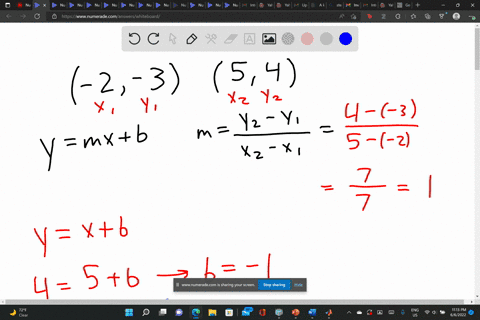 www.numerade.com/answers/whiteboard/
(-2, -3) (5, 4)
x₁ y₁ x₂ y₂
y = mx + b m = (y₂ - y₁)/(x₂ - x₁) = (4 - (-3))/(5 - (-2))
= 7/7 = 1
y = x + b
4 = 5 + b → b = -1
www.numerade.com is sharing your screen. Stop sharing Hide
72°F
Clear
ENG
US
11:15 PM
6/6/2022